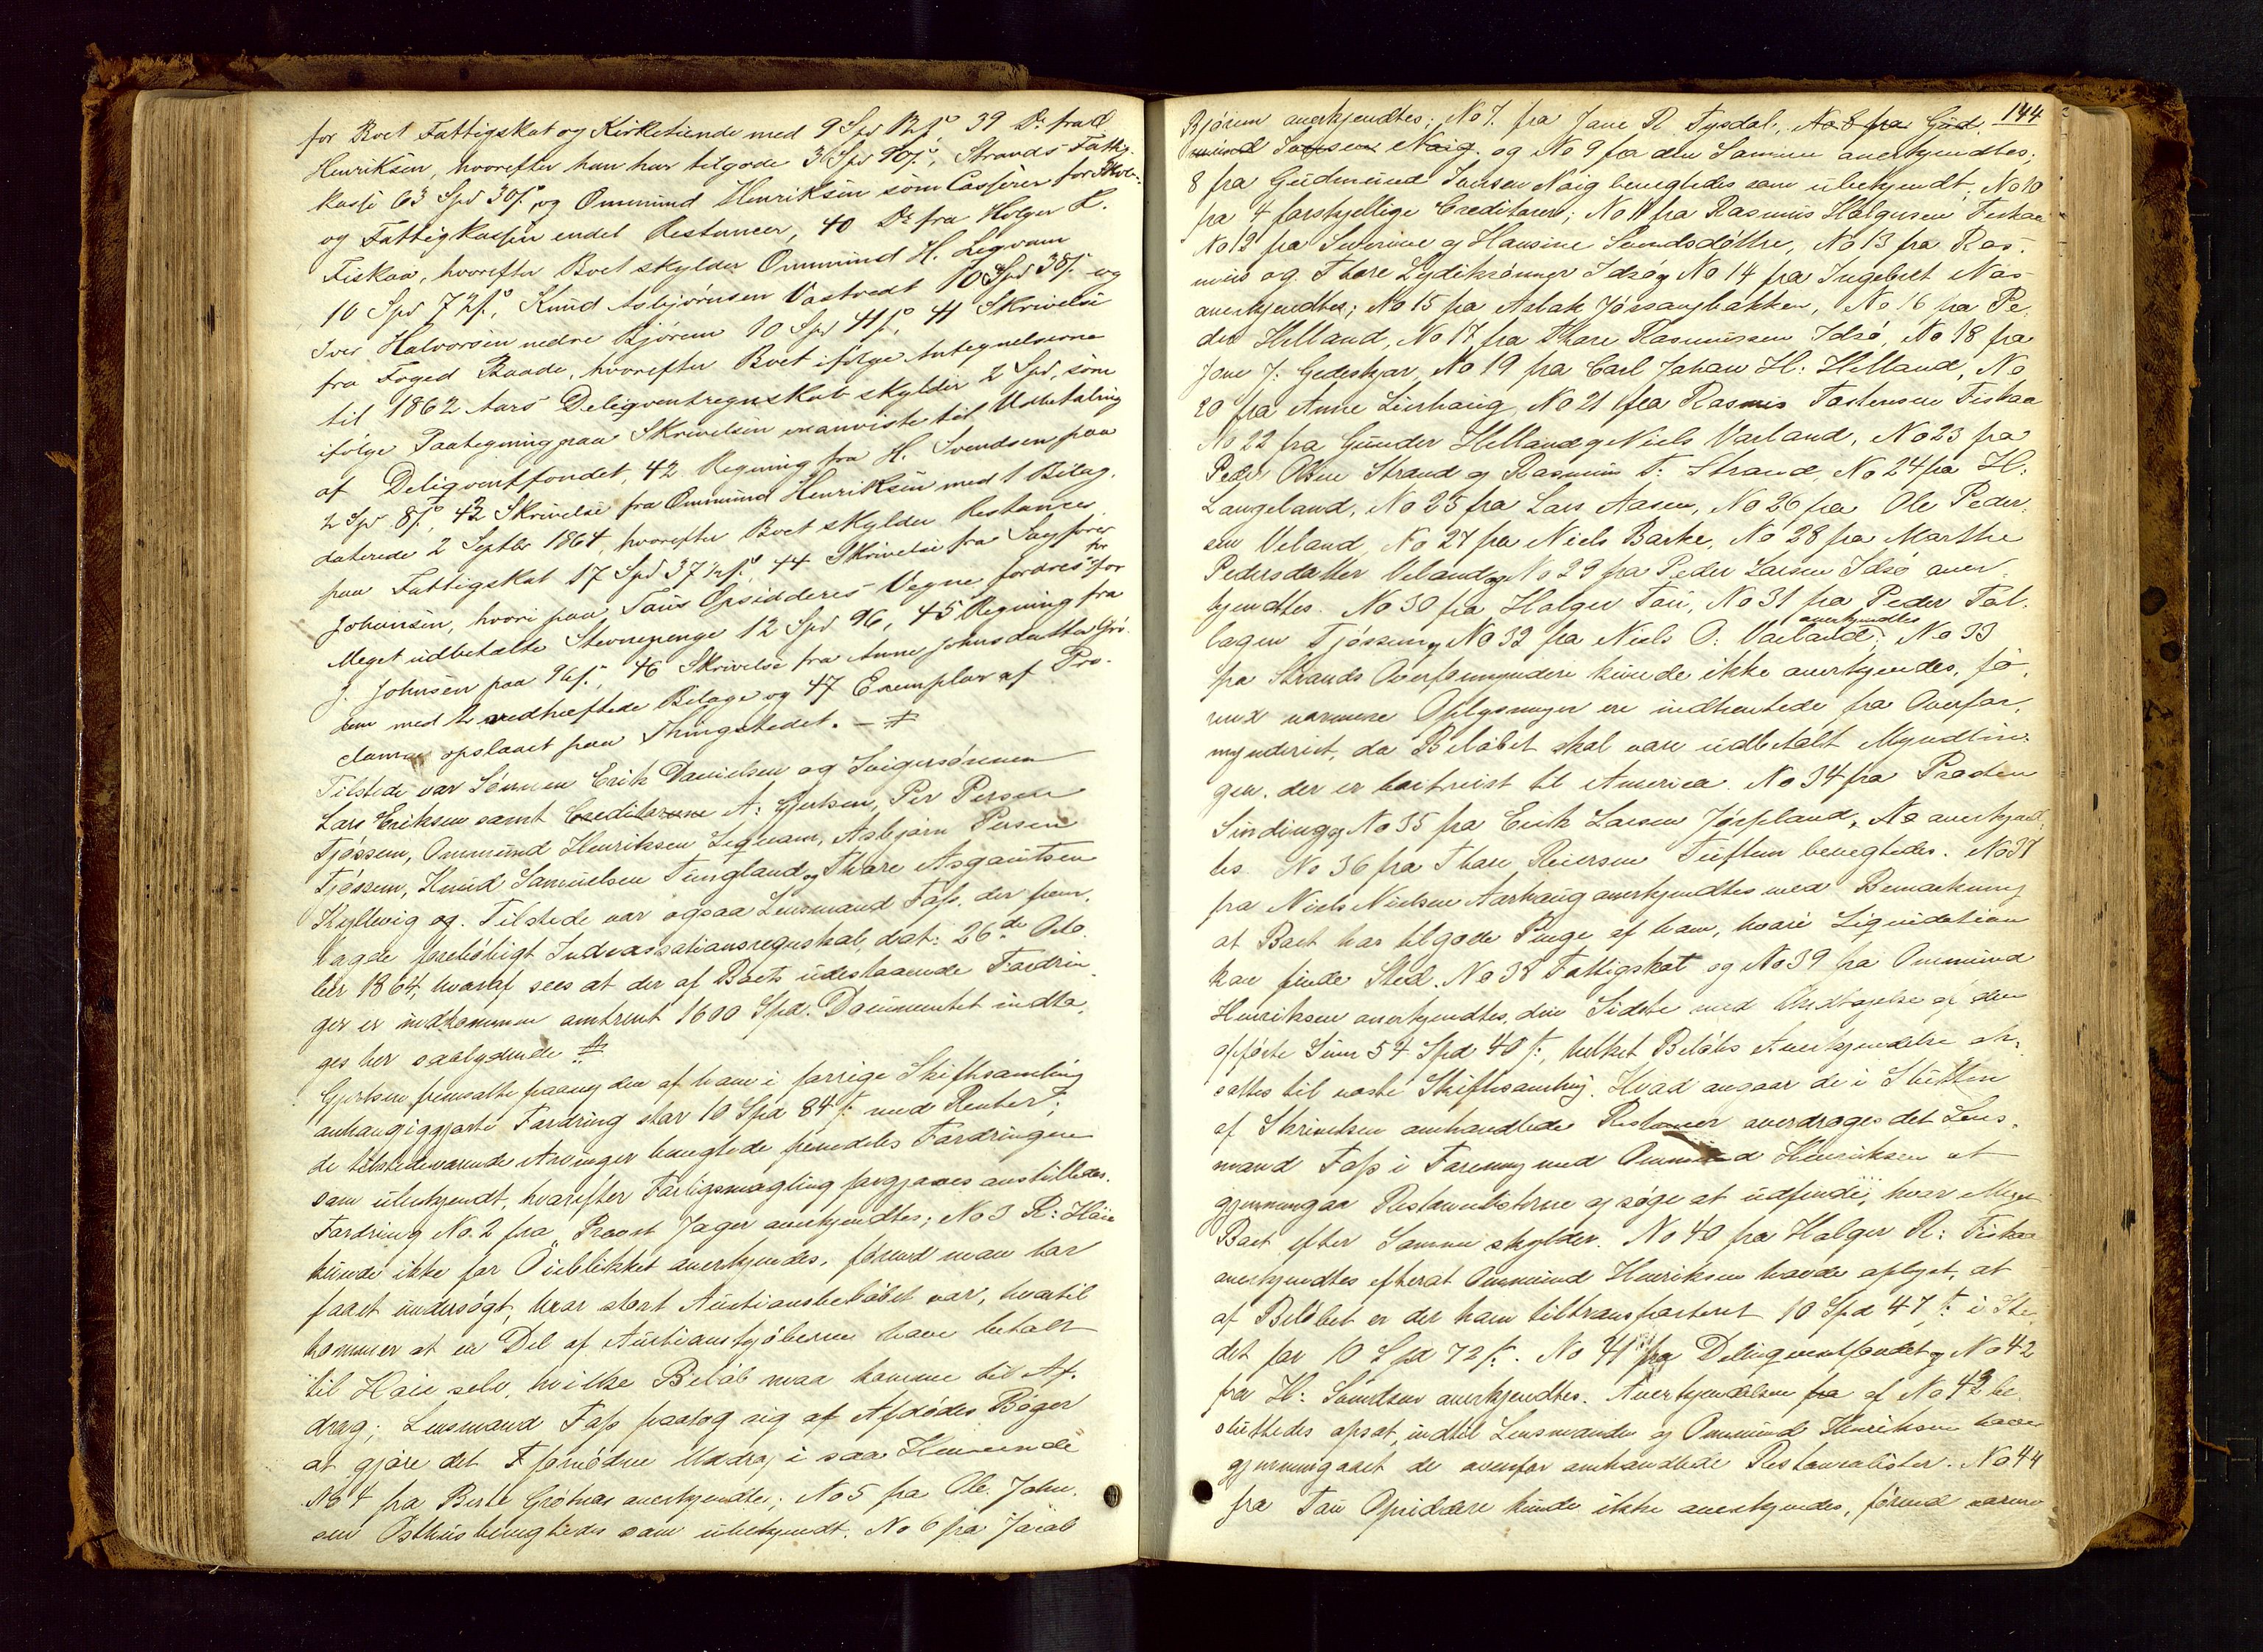 for Boet Fattigskat og Kirketiende med 9 Spd 12 ß, 39 Do fra O
Henriksen, hvorefter han har tilgode 36 Spd 90 ß, Strands Fattig-
kasse 63 Spd 30 ß og Ommund Henriksen som Casserer for Skole-
og Fattigkassen endel Restancer, 40 Do fra Holger R.
Fiskaa, hvorefter Boet skylder Ommund H. Legvam
10 Spd 72 ß, Knud Asbjørnsen Vastvedt 10 Spd 38 ß og
Iver Halvorsen nedre Bjørem 10 Spd 41 ß, 41 Skrivelse
fra Foged Baade, hvorefter Boet ifølge Antegnelserne
til 1862 Aars Deliqventregnskab skylder 2 Spd, som
ifølge Paategning paa Skrivelsen er anviste til Udbetaling
af Deliqventfondet, 42 Regning fra H. Svendsen paa
2 Spd 8 ß, 43 Skrivelse fra Ommund Henriksen med 1 Bilag
daterede 2 Septbr 1864, hvorefter Boet skylder Restancer
paa Fattigskat 17 Spd 37½ ß, 44 Skrivelse fra Sagfører
Johansen, hvori paa Taus Opsidderes Vegne fordres for
Meget udbetalte Stevnepenge 12 Spd 96, 45 Regning fra
J. Johnsen paa 96 ß, 46 Skrivelse fra Anne Johnsdatter Grø-
dem med 2 vedheftede Bilage og 47 Exemplar af Pro-
clama opslaaet paa Thingstedet. –
Tilstede var Sønnen Erik Danielsen og Svigersønnen
Lars Eriksen samt Creditorerne A: Gjertsen, Per Persen
Tjøssem, Ommund Henriksen Legvam, Asbjørn Persen
Tjøssem, Knud Samuelsen Tungland og Thore Asgautsen
Kyllevig og. Tilstede var ogsaa Lensmand Fass, der frem-
lagde foreløbigt Indcassationsregnskab, dat: 26de Octo-
ber 1864, hvoraf sees at der af Boets udestaaende Fordrin-
ger er indkommen omtrent 1600 Spd. Documentet indta-
ges her saalydende
Gjertsen fremsatte paany den af ham i forrige Skiftesamling
anhængiggjorte Fordring stor 10 Spd 84 ß: med Renter;
de tilstedeværende Arvinger benegtede fremdeles Fordringen
som ubekjendt, hvorefter Forligsmægling forgjæves anstilledes.
Fordring No. 2 fra Provst Jæger anerkjendtes; No 3 R: Høie
kunde ikke for Øieblikket anerkjendes, førend man har
faaet undersøgt, hvor stort Auctionsbeløbet var, hvortil
kommer at en Del af Auctionskjøberne have betalt
til Høie selv, hvilke Beløb maa komme til Af-
drag; Lensmand Fass paatog sig af Afdødes Bøger
at gjøre det Fornødne Uddrag i saa Henseende
No 4 fra Berte Grøtnes anerkjendtes; No 5 fra Ole John-
sen Østhus benegtedes som ubekjendt. No 6 fra Jacob
144
Bjørem anerkjendtes; No 7. fra Jane R. Tysdal, No 8 fra Gud-
mund Iversen Naig og No 9 fra den Samme anerkjendtes;
8 fra Gudmund Iversen Naig benegtedes som ubekjendt, No 10
fra 4 forskjellige Creditorer; No 11 fra Rasmus Holgersen Fiskaa
No 12 fra Severine og Hansine Svendsdøttre, No 13 fra Ras-
mus og Thore Lydiksønner Idsø og No 14 fra Ingebret Nås
anerkjendtes; No 15 fra Aslak Jøssangbakken, No 16 fra Pe-
der Helland, No 17 fra Thore Rasmussen Idsø, No 18 fra
Jone J: Gedeskjær, No 19 fra Carl Johan H: Helland, No
20 fra Anne Lierhaug, No 21 fra Rasmus Tostensen Fiskaa
No 22 fra Gunder Helland og Niels Varland, No 23 fra
Peder Olsen Strand og Rasmus T: Strand, No 24 fra H:
Langeland, No 25 fra Lars Aasen, No 26 fra Ole Peder-
sen Veland, No 27 fra Niels Barke, No 28 fra Marthe
Pedersdatter Veland og No 29 fra Peder Larsen Idsø aner-
kjendtes. No 30 fra Holger Tau, No 31 fra Peder Tol-
lagsen Tjøssem og No 32 fra Niels O: Varland anerkjendtes; No 33
fra Strands Overformynderi kunde ikke anerkjendes, fø-
rend nærmere Oplysninger ere indhentede fra Overfor-
mynderiet, da Beløbet skal være udbetalt Myndlin-
gen, der er bortreist til America. No 34 fra Pastor
Sinding og No 35 fra Erik Larsen Jørpland, No anerkjend-
tes. No 36 fra Thore Reiersen Tuftene benegtedes. No 37
fra Niels Nielsen Aarhaug anerkjendtes med Bemærkning
at Boet har tilgode Penge af ham, hvori Liquidation
kan finde Sted. No 38 Fattigskat og No 39 fra Ommund
Henriksen anerkjendtes, den Sidste med Undtagelse af den
opførte Sum 54 Spd 40 ß:, hvilket Beløbs Anerkjendelse ud-
sattes til næste Skiftesamling. Hvad angaar de i Slutten
af Skrivelsen omhandlede Restancer overdroges det Lens-
mand Fass i Forening med Ommund Henriksen at
gjennemgaa Restancelisterne og søge at udfinde, hvor Meget
Boet efter Samme skylder. No 40 fra Holger R: Fiskaa
anerkjendtes efterat Ommund Henriksen havde oplyst, at
af Beløbet er der ham tiltransporteret 10 Spd 47 ß: i Ste-
det for 10 Spd 72 ß:. No 41 fra Delinquentfondet og No 42
fra H: Svendsen anerkjendtes. Anerkjendelsen fra af No 43 be-
sluttedes opsat, indtil Lensmanden og Ommund Henriksen have
gjennemgaaet de ovenfor omhandlede Restancelister. No 44
fra Tau Opsiddere kunde ikke anerkjendes, førend nærme-